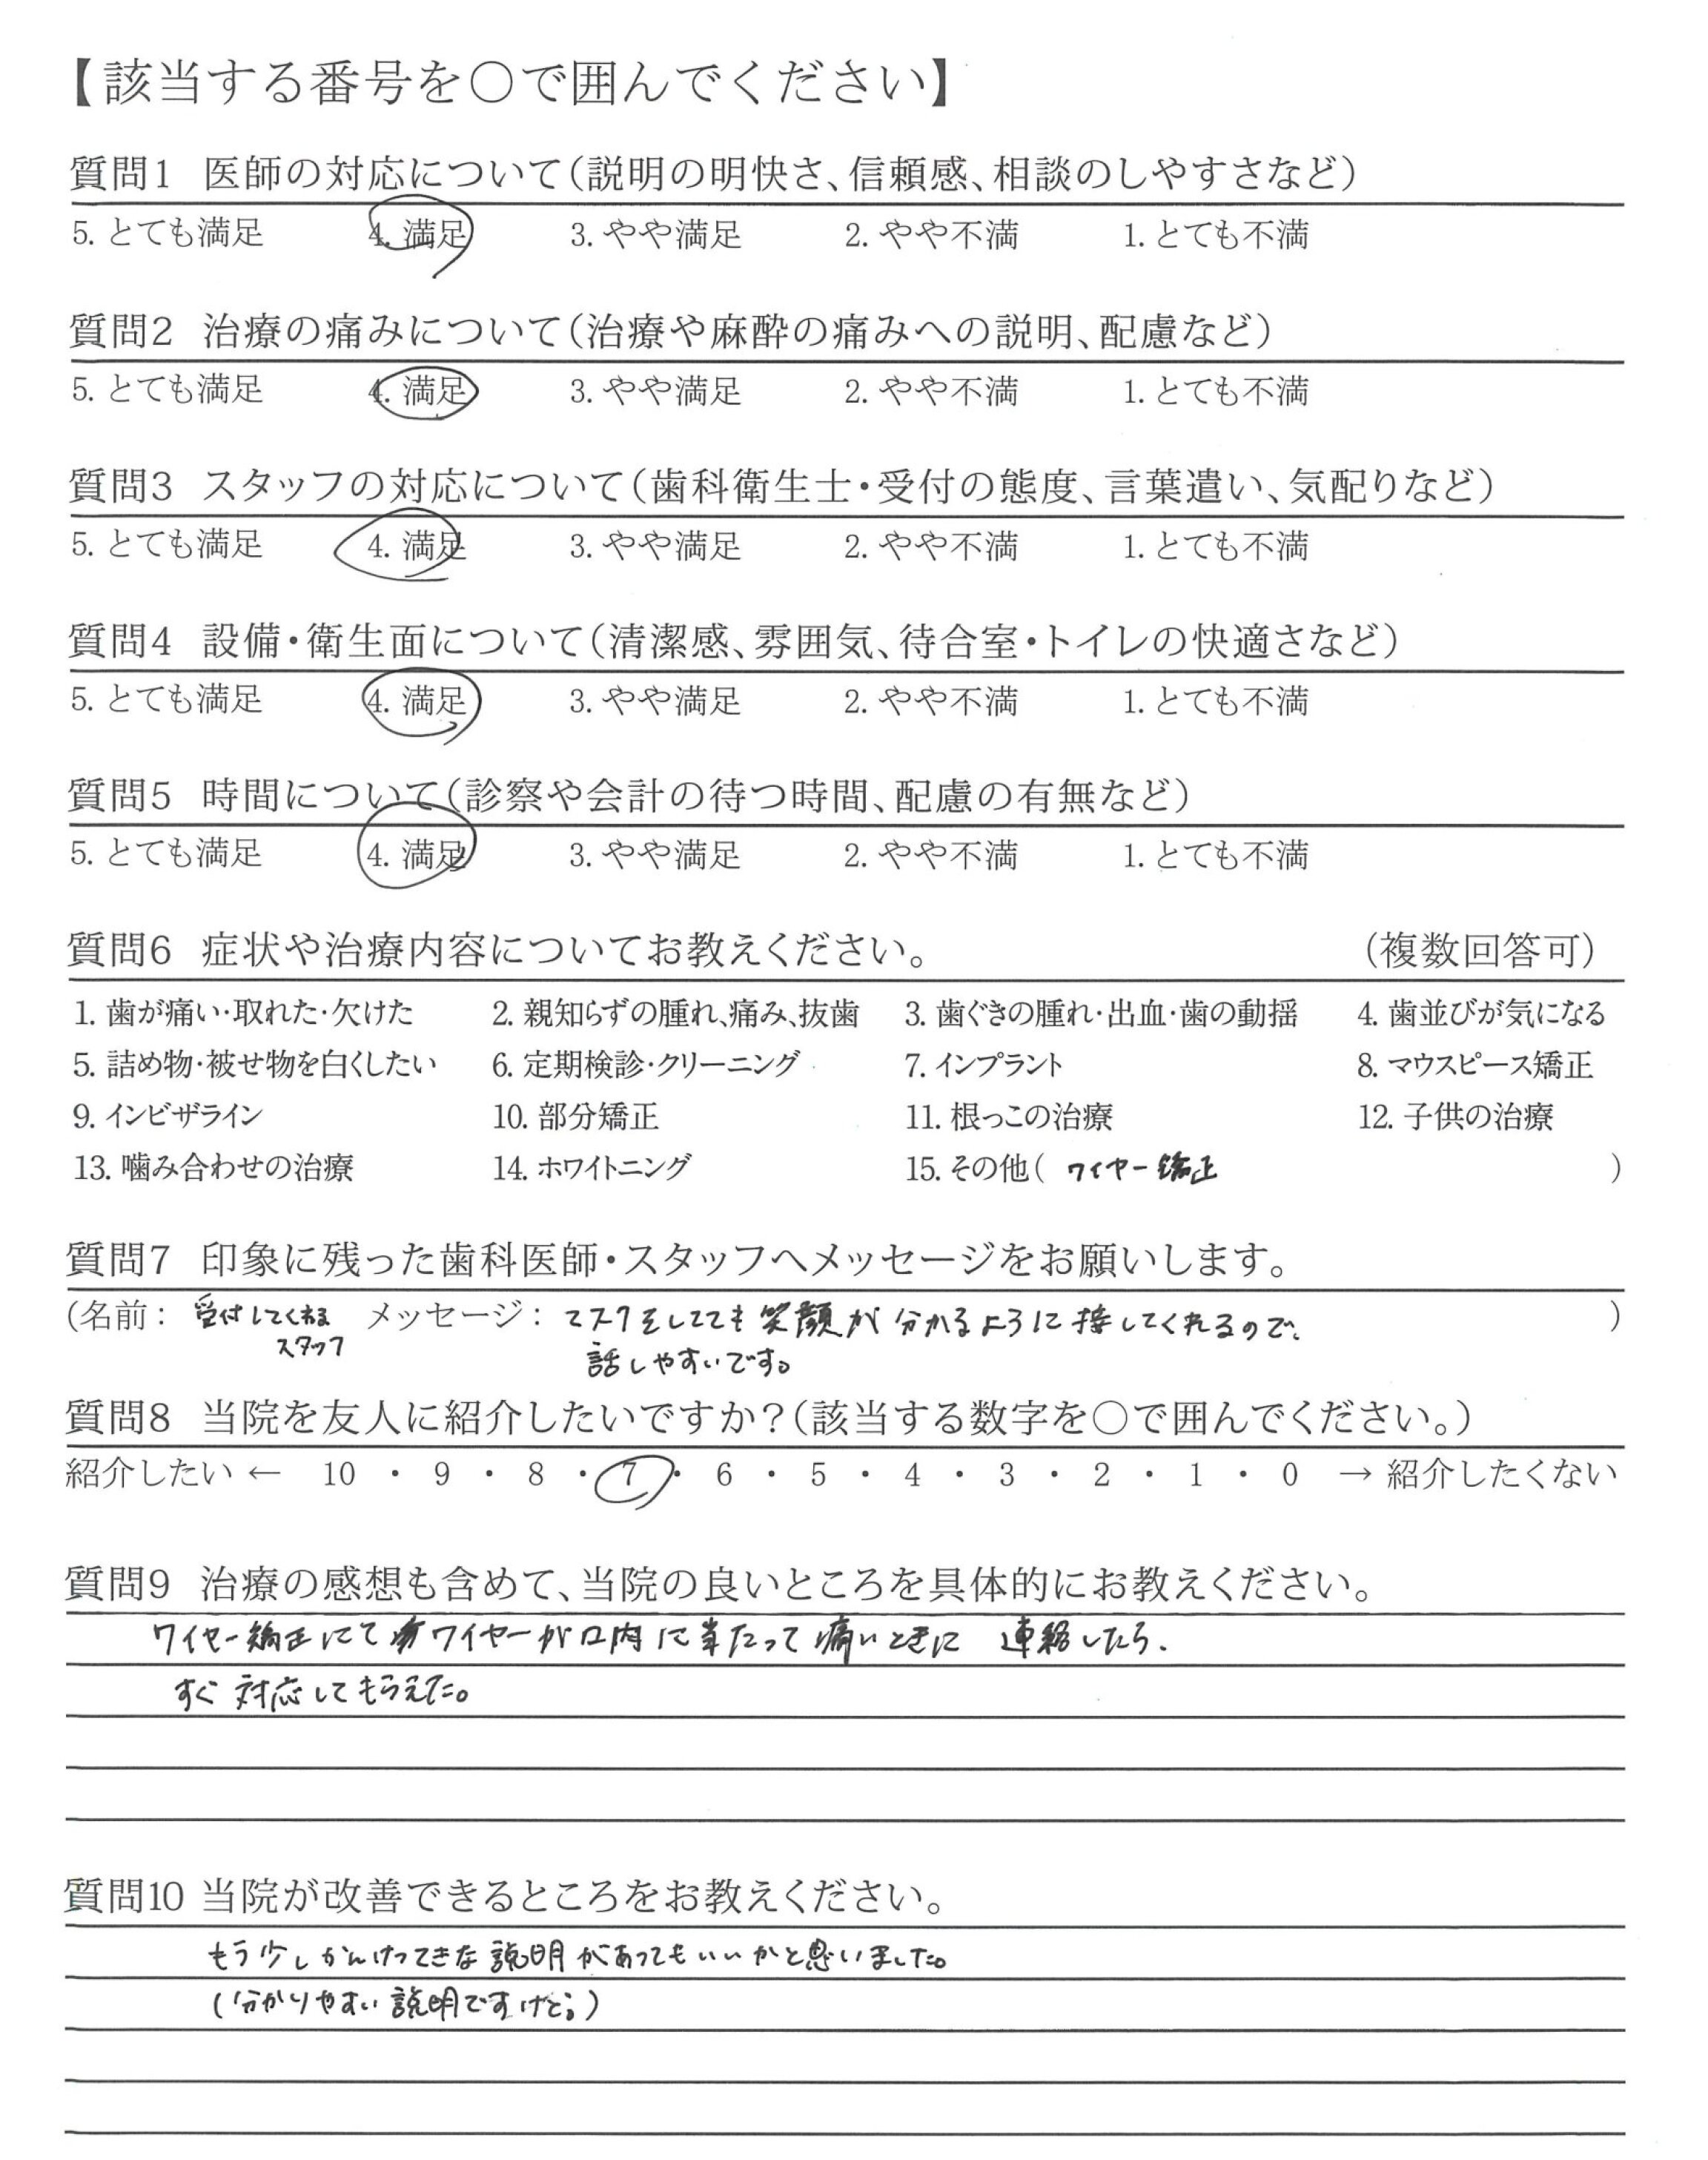 【該当する番号を○で囲んでください】
質問1 医師の対応について（説明の明快さ、信頼感、相談のしやすさなど）
5. とても満足 4. 満足 3. やや満足 2. やや不満 1. とても不満
質問2 治療の痛みについて（治療や麻酔の痛みへの説明、配慮など）
5. とても満足 4. 満足 3. やや満足 2. やや不満 1. とても不満
質問3 スタッフの対応について（歯科衛生士・受付の態度、言葉遣い、気配りなど）
5. とても満足 4. 満足 3. やや満足 2. やや不満 1. とても不満
質問4 設備・衛生面について（清潔感、雰囲気、待合室・トイレの快適さなど）
5. とても満足 4. 満足 3. やや満足 2. やや不満 1. とても不満
質問5 時間について（診察や会計の待つ時間、配慮の有無など）
5. とても満足 4. 満足 3. やや満足 2. やや不満 1. とても不満
質問6 症状や治療内容についてお教えください。 （複数回答可）
1. 歯が痛い・取れた・欠けた 2. 親知らずの腫れ、痛み、抜歯 3. 歯ぐきの腫れ・出血・歯の動揺 4. 歯並びが気になる
5. 詰め物・被せ物を白くしたい 6. 定期検診・クリーニング 7. インプラント 8. マウスピース矯正
9. インビザライン 10. 部分矯正 11. 根っこの治療 12. 子供の治療
13. 噛み合わせの治療 14. ホワイトニング 15. その他（ ワイヤー矯正 ）
質問7 印象に残った歯科医師・スタッフへメッセージをお願いします。
（名前： 受付してくれる メッセージ： マスクをしてても笑顔が分かるように接してくれるので、 ）
スタッフ 話しやすいです。
質問8 当院を友人に紹介したいですか？（該当する数字を○で囲んでください。）
紹介したい ← 10 ・ 9 ・ 8 ・ 7 ・ 6 ・ 5 ・ 4 ・ 3 ・ 2 ・ 1 ・ 0 → 紹介したくない
質問9 治療の感想も含めて、当院の良いところを具体的にお教えください。
ワイヤー矯正にてワイヤーが口内に当たって痛いときに 連絡したら、
すぐ対応してもらえた。
質問10 当院が改善できるところをお教えください。
もう少しかんけつてきな説明があってもいいかと思いました。
（分かりやすい説明ですけど。）